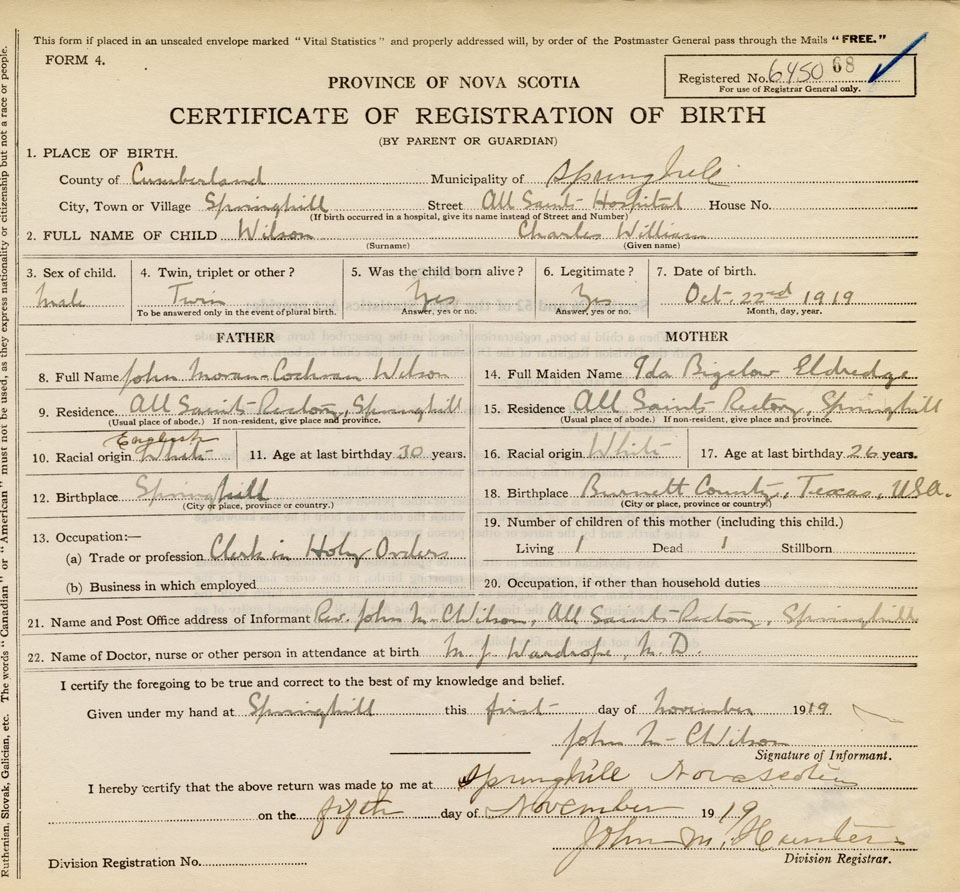 This form if placed in an unsealed envelope marked "Vital Statistics" and properly addressed will, by order of the Postmaster General pass through the Mails "FREE."
FORM 4.
Registered No. 6450 68
For use of Registrar General only.
PROVINCE OF NOVA SCOTIA
CERTIFICATE OF REGISTRATION OF BIRTH
(BY PARENT OR GUARDIAN)
1. PLACE OF BIRTH.
County of Cumberland Municipality of Springhill
City, Town or Village Springhill Street All Saints Hospital House No.
(If birth occurred in a hospital, give its name instead of Street and Number)
2. FULL NAME OF CHILD Wilson Charles William
(Surname) (Given name)
3. Sex of child. Male
4. Twin, triplet or other? Twin
To be answered only in the event of plural birth.
5. Was the child born alive? Yes
Answer, yes or no.
6. Legitimate? Yes
Answer, yes or no.
7. Date of birth. Oct. 22nd 1919
Month, day, year.
FATHER
8. Full Name John Moran-Cochran Wilson
9. Residence All Saints Rectory, Springhill
(Usual place of abode.) If non-resident, give place and province.
English
10. Racial origin White 11. Age at last birthday 30 years.
12. Birthplace Springhill
(City or place, province or country.)
13. Occupation:—
(a) Trade or profession Clerk in Holy Orders
(b) Business in which employed
MOTHER
14. Full Maiden Name Ida Bigelow Eldredge
15. Residence All Saints Rectory, Springhill
(Usual place of abode.) If non-resident, give place and province.
16. Racial origin White 17. Age at last birthday 26 years.
18. Birthplace Burnett County, Texas, USA.
(City or place, province or country.)
19. Number of children of this mother (including this child.)
Living 1 Dead 1 Stillborn
20. Occupation, if other than household duties
21. Name and Post Office address of Informant Rev. John M-C Wilson, All Saints Rectory, Springhill
22. Name of Doctor, nurse or other person in attendance at birth M. J. Wardrope, M.D.
I certify the foregoing to be true and correct to the best of my knowledge and belief.
Given under my hand at Springhill this first day of November 1919
John M-C Wilson
Signature of Informant.
I hereby certify that the above return was made to me at Springhill Nova Scotia
on the fifth day of November 1919
John M. Hunter
Division Registrar.
Division Registration No.
Ruthenian, Slovak, Galician, etc. The words "Canadian" or "American" must not be used, as they express nationality or citizenship but not a race or people.